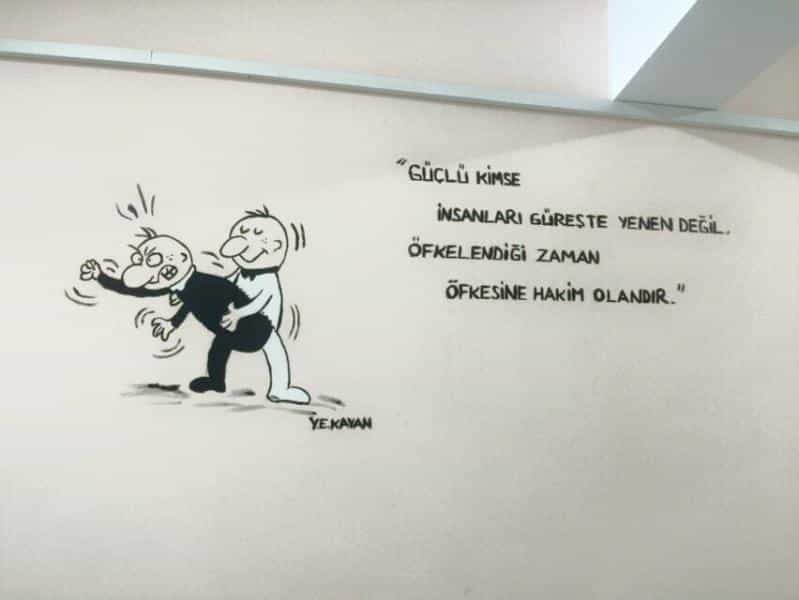 "GÜÇLÜ KİMSE
İNSANLARI GÜREŞTE YENEN DEĞİL.
ÖFKELENDİĞİ ZAMAN
ÖFKESİNE HAKİM OLANDIR."
Y.E.KAYAN